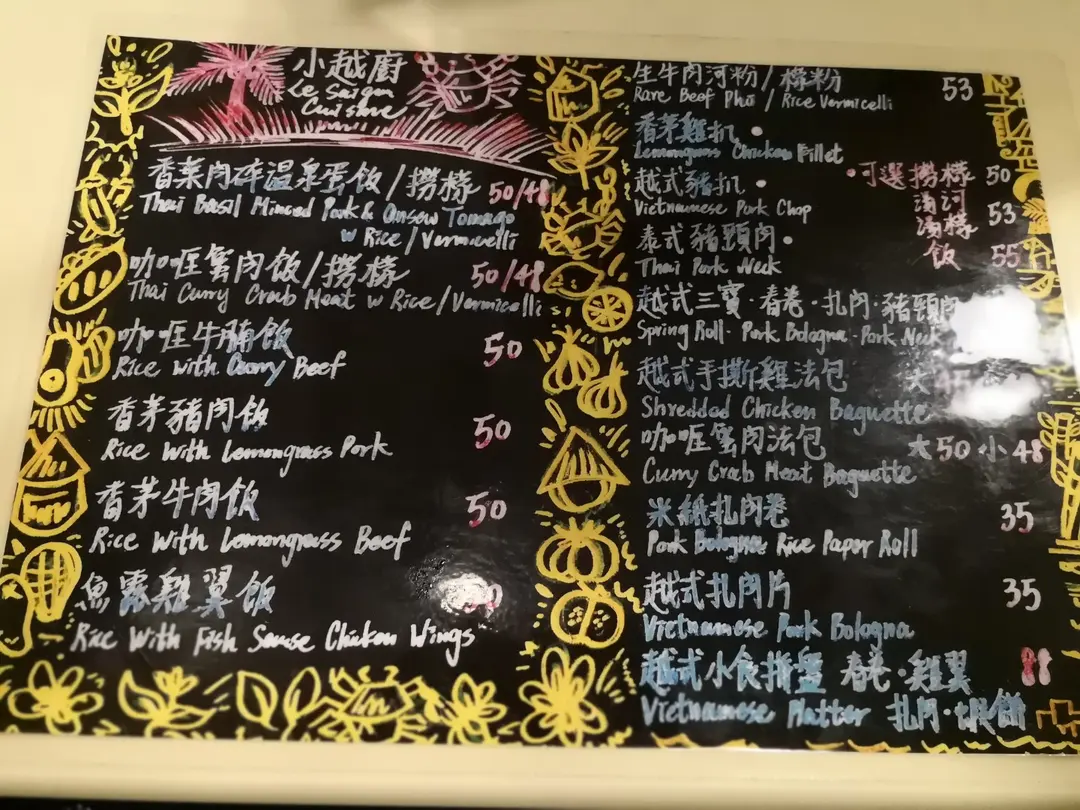 小越廚
Le Saigon
Cuisine
香菜肉碎温泉蛋飯/撈檬 50/48
Thai Basil Minced Pork & Onsew Tomago
w Rice/Vermicelli
咖喱蟹肉飯/撈檬 50/48
Thai Curry Crab Meat w Rice/Vermicelli
咖喱牛腩飯 50
Rice with Curry Beef
香茅豬肉飯 50
Rice with Lemongrass Pork
香茅牛肉飯 50
Rice with Lemongrass Beef
魚露雞翼飯
Rice With Fish Sause Chicken Wings
生牛肉河粉/檬粉 53
Rare Beef Pho / Rice Vermicelli
香茅雞扒 •
Lemongrass Chicken Fillet
越式豬扒 • •可選 撈檬 50
Vietnamese Pork Chop 湯河
湯檬 53
泰式豬頸肉 • 飯 55
Thai Pork Neck
越式三寶·春卷·扎肉·豬頸肉
Spring Roll· Pork Bologna·Pork Neck
越式手撕雞法包 大
Shredded Chicken Baguette
咖喱蟹肉法包 大50小48
Curry Crab Meat Baguette
米紙扎肉卷 35
Pork Bologna Rice Paper Roll
越式扎肉片 35
Vietnamese Pork Bologna
越式小食拼盤 春卷·雞翼 88
Vietnamese Platter 扎肉·蝦餅